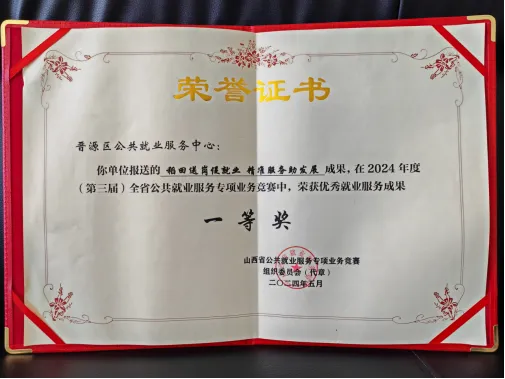 荣誉证书
晋源区公共就业服务中心：
你单位报送的 稻田送岗促就业 精准服务助发展 成果，在 2024 年度
（第三届）全省公共就业服务专项业务竞赛中，荣获优秀就业服务成果
一等奖
山西省公共就业服务专项业务竞赛
组织委员会（代章）
二〇二四年五月